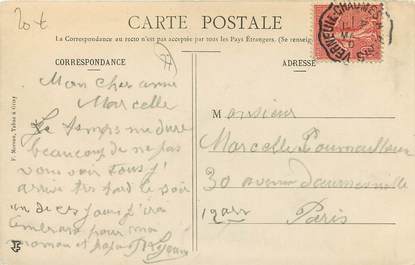 20 t
CARTE POSTALE
La Correspondance au recto n'est pas acceptée par tous les Pays Étrangers. (Se renseign
CORRESPONDANCE
ADRESSE
VERNEUIL-CHAUMES
Mon cher
Marcelle
Le temps me dure
beaucoup de ne pas
vous voir tous j'
arrive tres tard le soir
un de ces jours j'irai
pour moi
maman et papa
Monsieur
Marcelle
30 avenue daumesnille
12 arr
Paris
F. Moreau, Tabac à